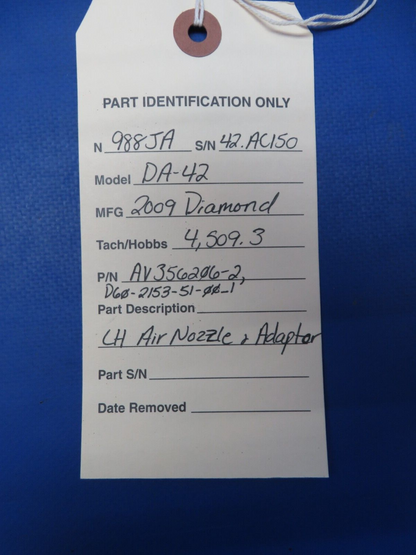 PART IDENTIFICATION ONLY
N 988JA S/N 42.AC150
Model DA-42
MFG 2009 Diamond
Tach/Hobbs 4,509.3
P/N AV356206-2,
D60-2153-51-00_1
Part Description
LH Air Nozzle & Adaptor
Part S/N
Date Removed